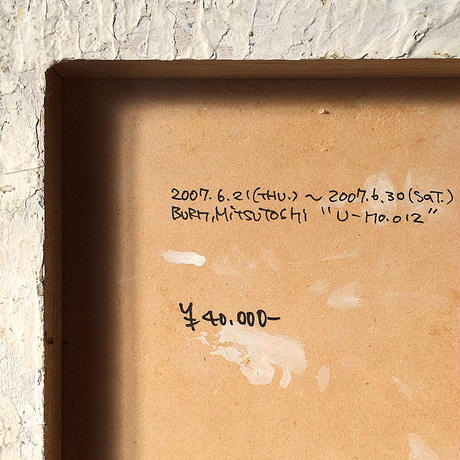 2007. 6. 21 (THU.) ~ 2007. 6. 30 (SAT.)
BURH, MITSUTOSHI "U-NO. 012"
¥ 40.000-